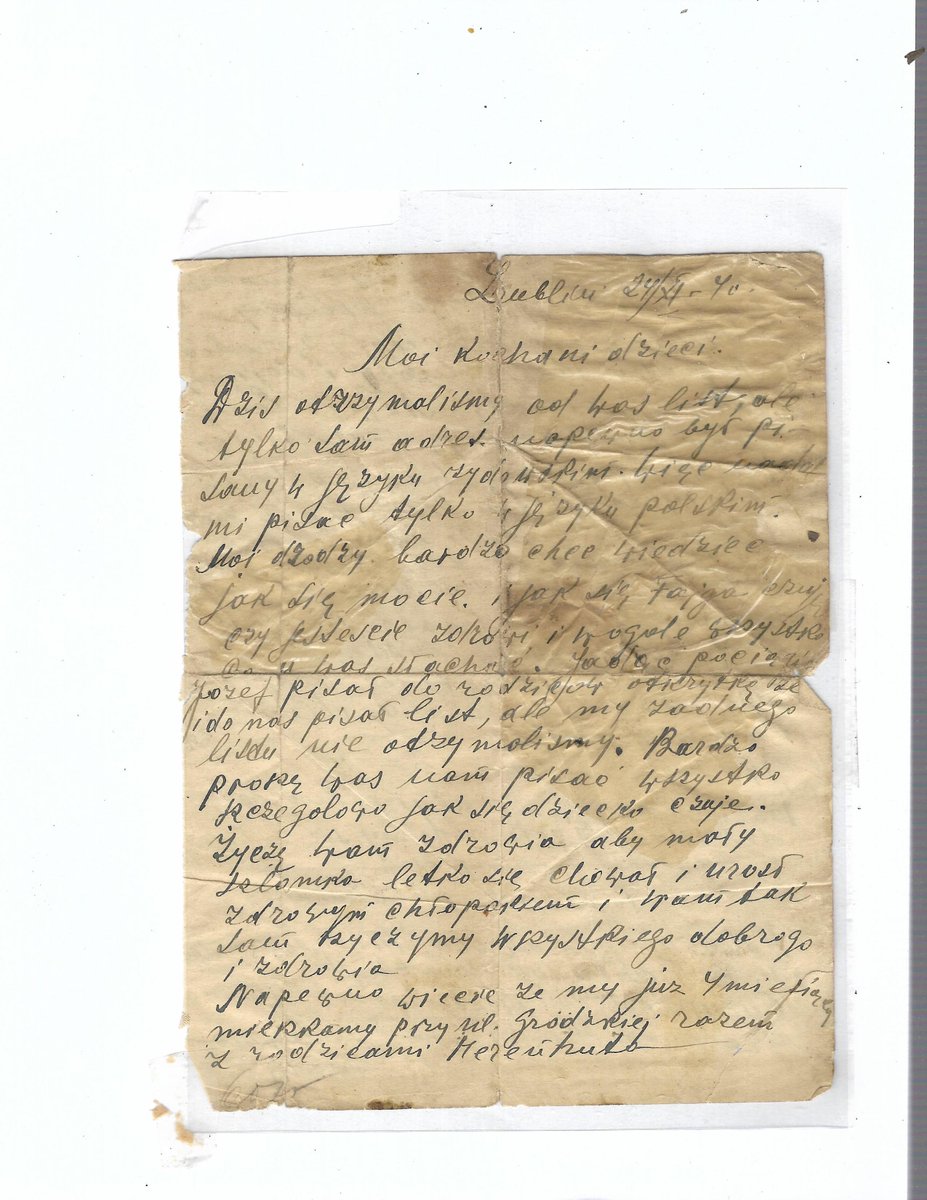 Lublin 24/XI - 40.
Moi kochani dzieci.
Dzis otrzymalismy od was list, ale
tylko sam adres. napewno był pi-
sany w języku zydowskim. więc
mi pisac tylko w języku polskim.
Moi dzodzy. bardzo chce wiedziec
jak się macie. i jak się Fajga czuj
czy jestescie zdrowi i wogole wszystko
co u was słachać.
Jozef pisał do rodzicow otkrytkę że
i do nas pisał list, ale my żadnego
listu nie otzymalismy. Bardzo
proszę was nam pisać wszystko
szczegolowo jak się dziecko czuje.
Zyczę wam zdrowia aby mały
szlomka letko się chował i urosł
zdrowym chłopcikem i wam tak
sam zyczymy wszystkiego dobrogo
i zdrowia
Napewno wiecie ze my juz 4 miesiący
mieszkamy przy ul. Grodzkiej razem
z rodzicami Herenhuta